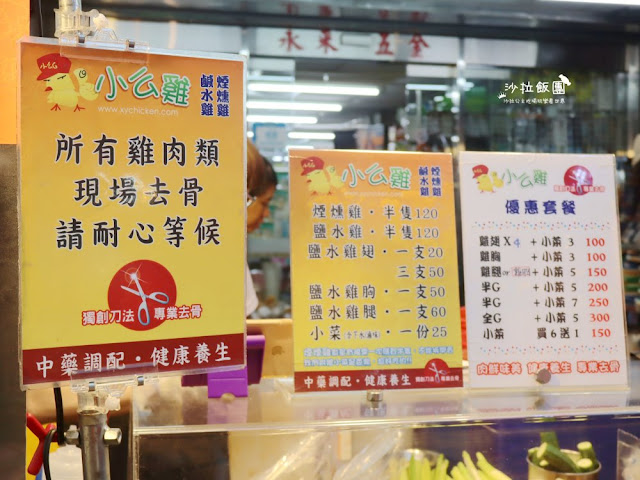 小么雞
鹹水雞
煙燻雞
www.xychicken.com
所有雞肉類
現場去骨
請耐心等候
獨創刀法 專業去骨
中藥調配・健康養生
永來 五金
沙拉飯團
小么雞
鹹水雞
煙燻雞
煙燻雞・半隻120
鹽水雞・半隻120
鹽水雞翅・一支20
三支50
鹽水雞胸・一支50
鹽水雞腿・一支60
小菜 ・一份25
中藥調配・健康養生
獨創刀法 專業去骨
小么雞
優惠套餐
雞翅X4 + 小菜 3 100
雞胸 + 小菜 3 100
雞腿or + 小菜 5 150
半G + 小菜 5 200
半G + 小菜 7 250
全G + 小菜 5 300
小菜 買6送1 150
肉鮮味美 健康養生 專業去骨